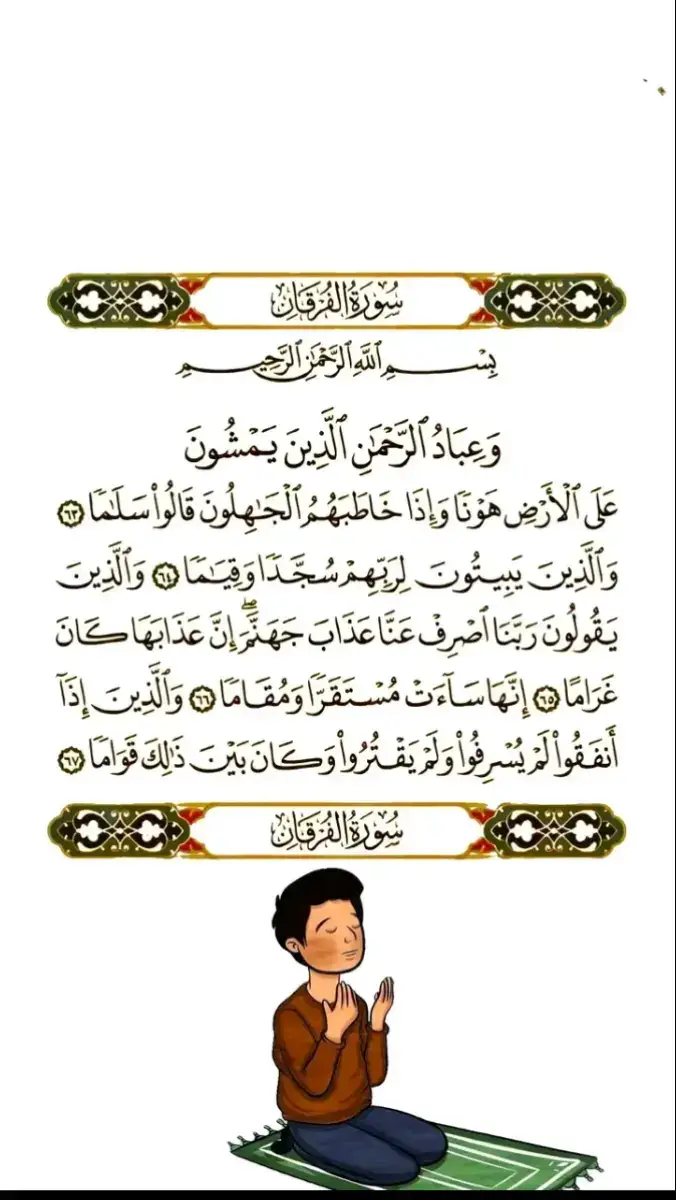 سُورَةُ الفُرْقَانِ
بِسْمِ ٱللَّهِ ٱلرَّحْمَٰنِ ٱلرَّحِيمِ
وَعِبَادُ ٱلرَّحْمَٰنِ ٱلَّذِينَ يَمْشُونَ
عَلَى ٱلْأَرْضِ هَوْنًا وَإِذَا خَاطَبَهُمُ ٱلْجَٰهِلُونَ قَالُوا۟ سَلَٰمًا ٦٣
وَٱلَّذِينَ يَبِيتُونَ لِرَبِّهِمْ سُجَّدًا وَقِيَٰمًا ٦٤ وَٱلَّذِينَ
يَقُولُونَ رَبَّنَا ٱصْرِفْ عَنَّا عَذَابَ جَهَنَّمَ ۖ إِنَّ عَذَابَهَا كَانَ
غَرَامًا ٦٥ إِنَّهَا سَآءَتْ مُسْتَقَرًّا وَمُقَامًا ٦٦ وَٱلَّذِينَ إِذَآ
أَنفَقُوا۟ لَمْ يُسْرِفُوا۟ وَلَمْ يَقْتُرُوا۟ وَكَانَ بَيْنَ ذَٰلِكَ قَوَامًا ٦٧
سُورَةُ الفُرْقَانِ